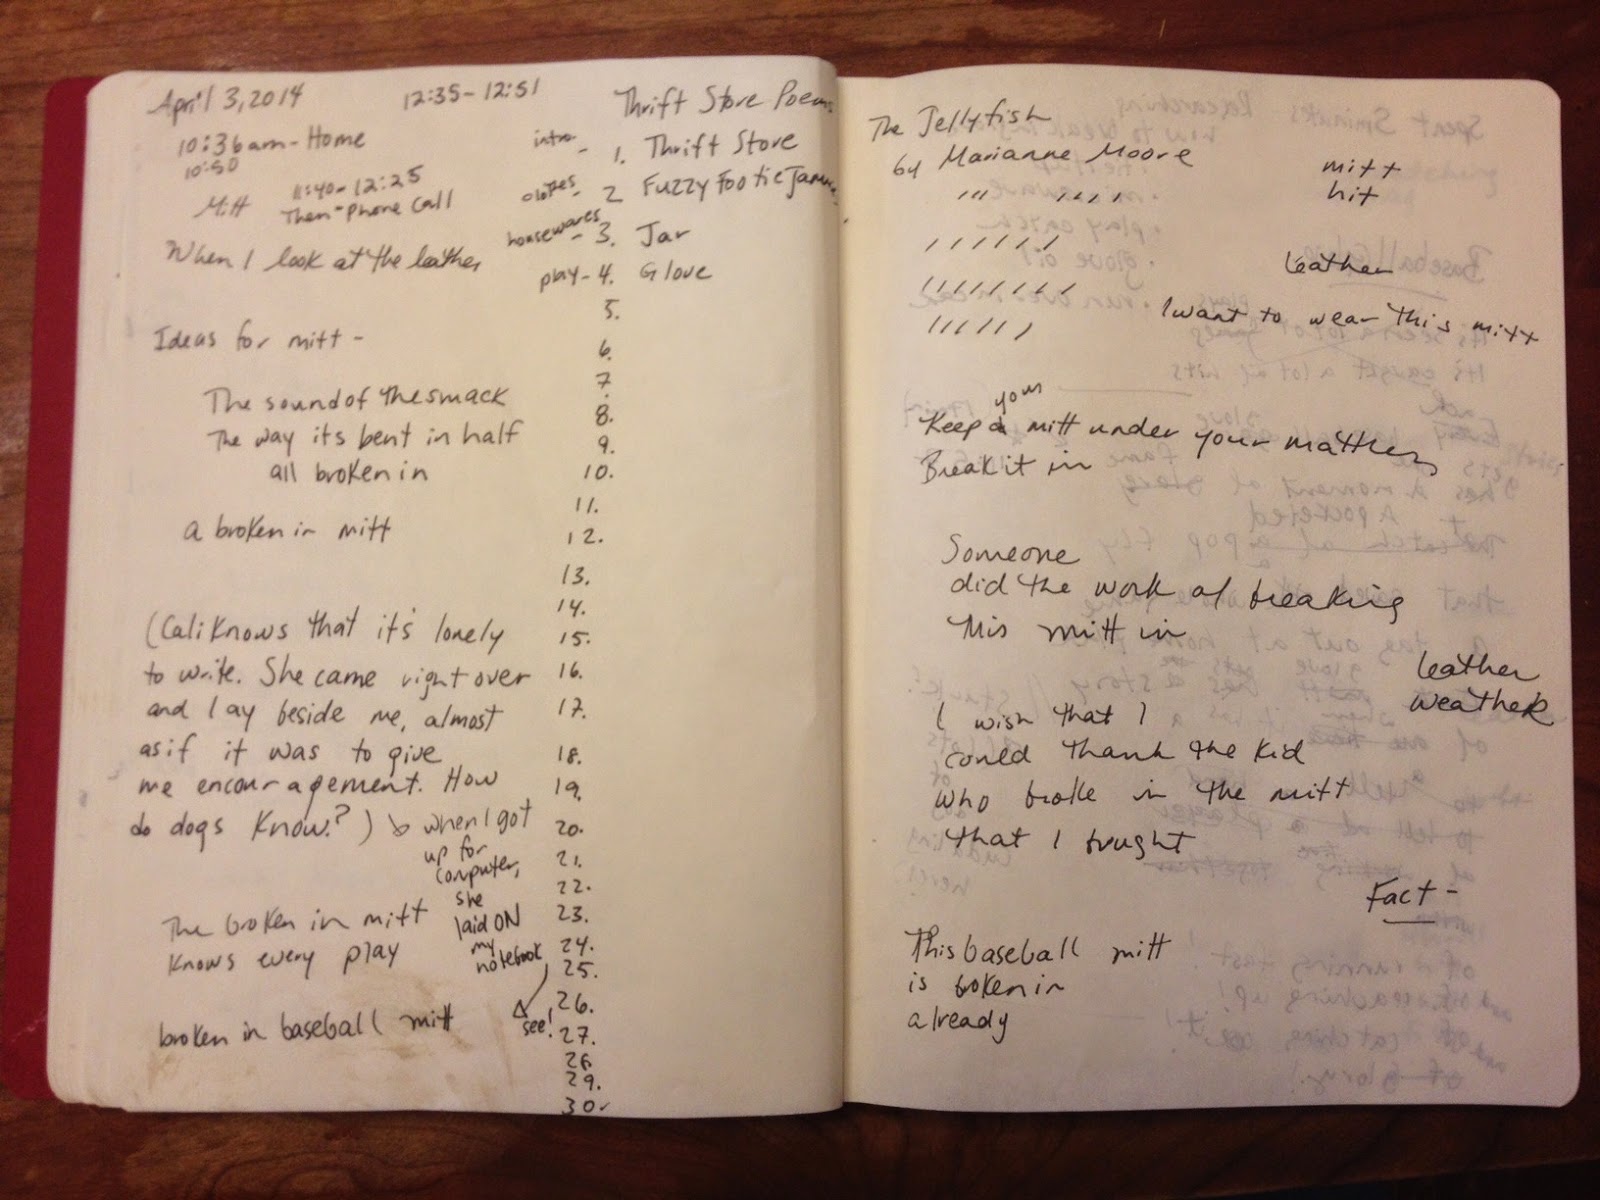 April 3, 2014
12:35 - 12:51
10:36 am - Home
10:50
Mitt
11:40 - 12:25
Then - Phone call
When I look at the leather
Ideas for mitt -
The sound of the smack
The way its bent in half
all broken in
a broken in mitt
(Cali knows that it's lonely
to write. She came right over
and lay beside me, almost
as if it was to give
me encouragement. How
do dogs know?)
when I got
up for
computer,
she
laid ON
my
notebook
see!
The broken in mitt
knows every play
broken in baseball mitt
Thrift Store Poems
intro - 1. Thrift Store
clothes - 2 Fuzzy Footie Jammies
housewares - 3. Jar
play - 4. Glove
5.
6.
7.
8.
9.
10.
11.
12.
13.
14.
15.
16.
17.
18.
19.
20.
21.
22.
23.
24.
25.
26.
27.
28.
29.
30.
The Jellyfish
by Marianne Moore
mitt
hit
leather
I want to wear this mitt
your
Keep a mitt under your mattress
Break it in
Someone
did the work of breaking
this mitt in
leather
weather
I wish that I
could thank the kid
who broke in the mitt
that I bought
Fact -
This baseball mitt
is broken in
already